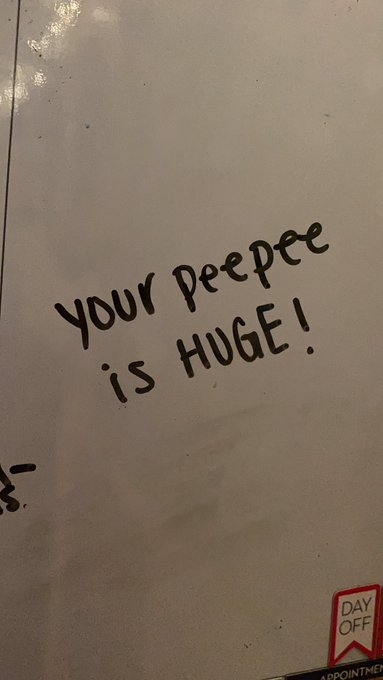 your peepee
is HUGE!
DAY
OFF
APPOINTMEN